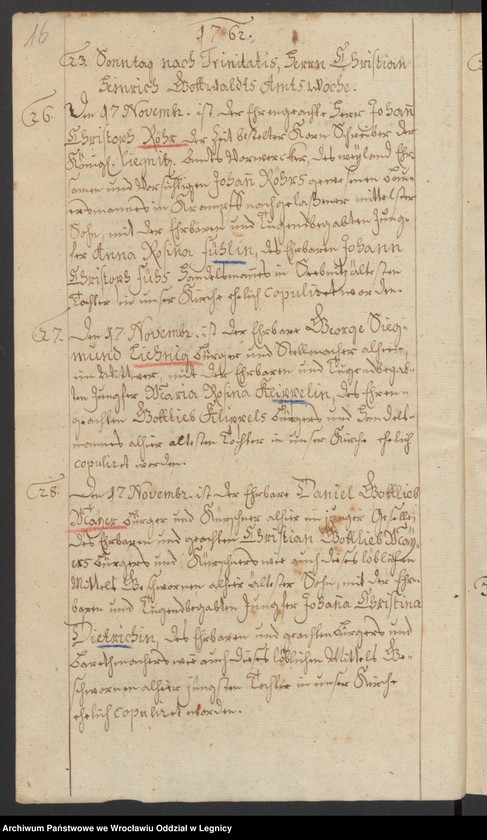 16
1762.
23. Sonntag nach Trinitatis, Herrn Christian
Heinrich Gottwaldts Amts Woche.
26. Den 17 Novembr. ist der Ehrengeachte Herr Johañ
Christoph Röhr der Zeit bestelter Korn Schreiber der
Königl. Liegnitz. Amts Vorwercker, des weyland Ehr-
samen und Vorsichtigen Johañ Röhrs gewesenen Bau-
ersmannes in nachgelaßener mittelster
Sohn, mit der Ehrbaren und Tugendbegabten Jung-
fer Anna Rosina Fühlin, des Ehrbaren Johann
Christoph Fühs Handelsmannes in ältesten
Tochter in unser Kirche ehelich copuliret worden.
27. Den 17 Novembr. ist der Ehrbare George Sieg-
mund Liebnig Bürger und Stellmacher alhier,
ein Wittwer, mit der Ehrbaren und Tugendbegab-
ten Jungfer Maria Rosina Klippelin, des Ehren-
geachten Gottlieb Klippels Bürgers und Handels-
mannes alhier ältesten Tochter in unser Kirche ehelich
copuliret worden.
28. Den 17 Novembr. ist der Ehrbare Daniel Gottlieb
Mayer Bürger und Kürschner alhier ein junger Geselle,
des Ehrbaren und geachten Christian Gottlieb May-
ers Bürgers und Kürschners wie auch dieses löblichen
Mittels Geschwornen alhier ältester Sohn, mit der Ehr-
baren und Tugendbegabten Jungfer Johaña Christina
Dietrichin, des Ehrbaren und geachten Bürgers und
Parchmachers wie auch dieses löblichen Mittels Ge-
schwornen alhier jüngsten Tochter in unser Kirche
ehelich copuliret worden.
Archiwum Państwowe we Wrocławiu Oddział w Legnicy